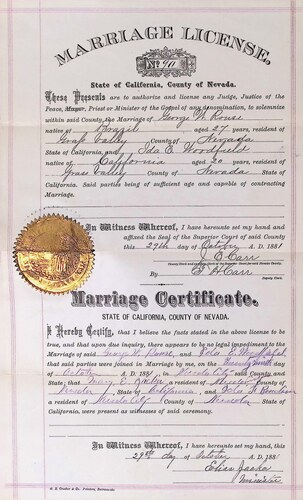 MARRIAGE LICENSE,
No. 90
State of California, County of Nevada.
These Presents are to authorize and license any Judge, Justice of the
Peace, Mayor, Priest or Minister of the Gospel of any denomination, to solemnize
within said County, the Marriage of George W. Rowse
native of Brazil aged 27 years, resident of
Grass Valley County of Nevada
State of California, and Ida E.
native of California aged 20 years, resident of
Grass Valley County of Nevada
State of California. Said parties being of sufficient age and capable of contracting
Marriage.
In Witness Whereof, I have hereunto set my hand and
affixed the Seal of the Superior Court of said County
this 29th day of October A. D. 1881
J E Carr
County Clerk and Clerk of the Superior Court
By Carr
Deputy Clerk
Marriage Certificate.
STATE OF CALIFORNIA, COUNTY OF NEVADA.
I Hereby Certify, that I believe the facts stated in the above license to be
true, and that upon due inquiry, there appears to be no legal impediment to the
Marriage of said George W. Rowse and
that said parties were joined in Marriage by me, on the
October A. D. 1881, in Nevada City said County and
State; that Mary E. a resident of Nevada County of
Nevada, State of California, and
a resident of Nevada City County of State of
California, were present as witnesses of said ceremony.
In Witness Whereof, I have hereunto set my hand, this
29th day of October A. D. 1881
Minister